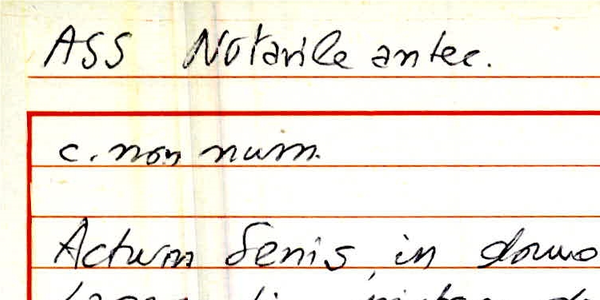 ASS Notarile antec.
c. non num.
Actum Senis, in domo